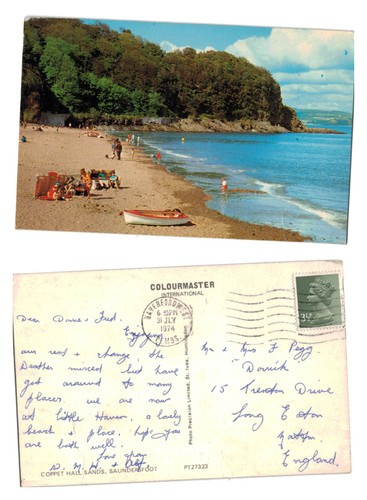 COLOURMASTER
INTERNATIONAL
HAVERFORDWEST
6 PM
31 JLY
1974
3½P
Dear Doris & Fred.
Enjoying
our rest & change, the
Weather mixed but have
got around to many
places. we are now
at little Haven, a lovely
beach & place, hope you
are both well.
Love from
COPPET HALL SANDS, SAUNDERSFOOT
Photo Precision Limited, St. Ives, Huntingdon
PT27323
Mr & Mrs F Pegg
15 Trenton Drive
Long Eaton
Nottm
England.